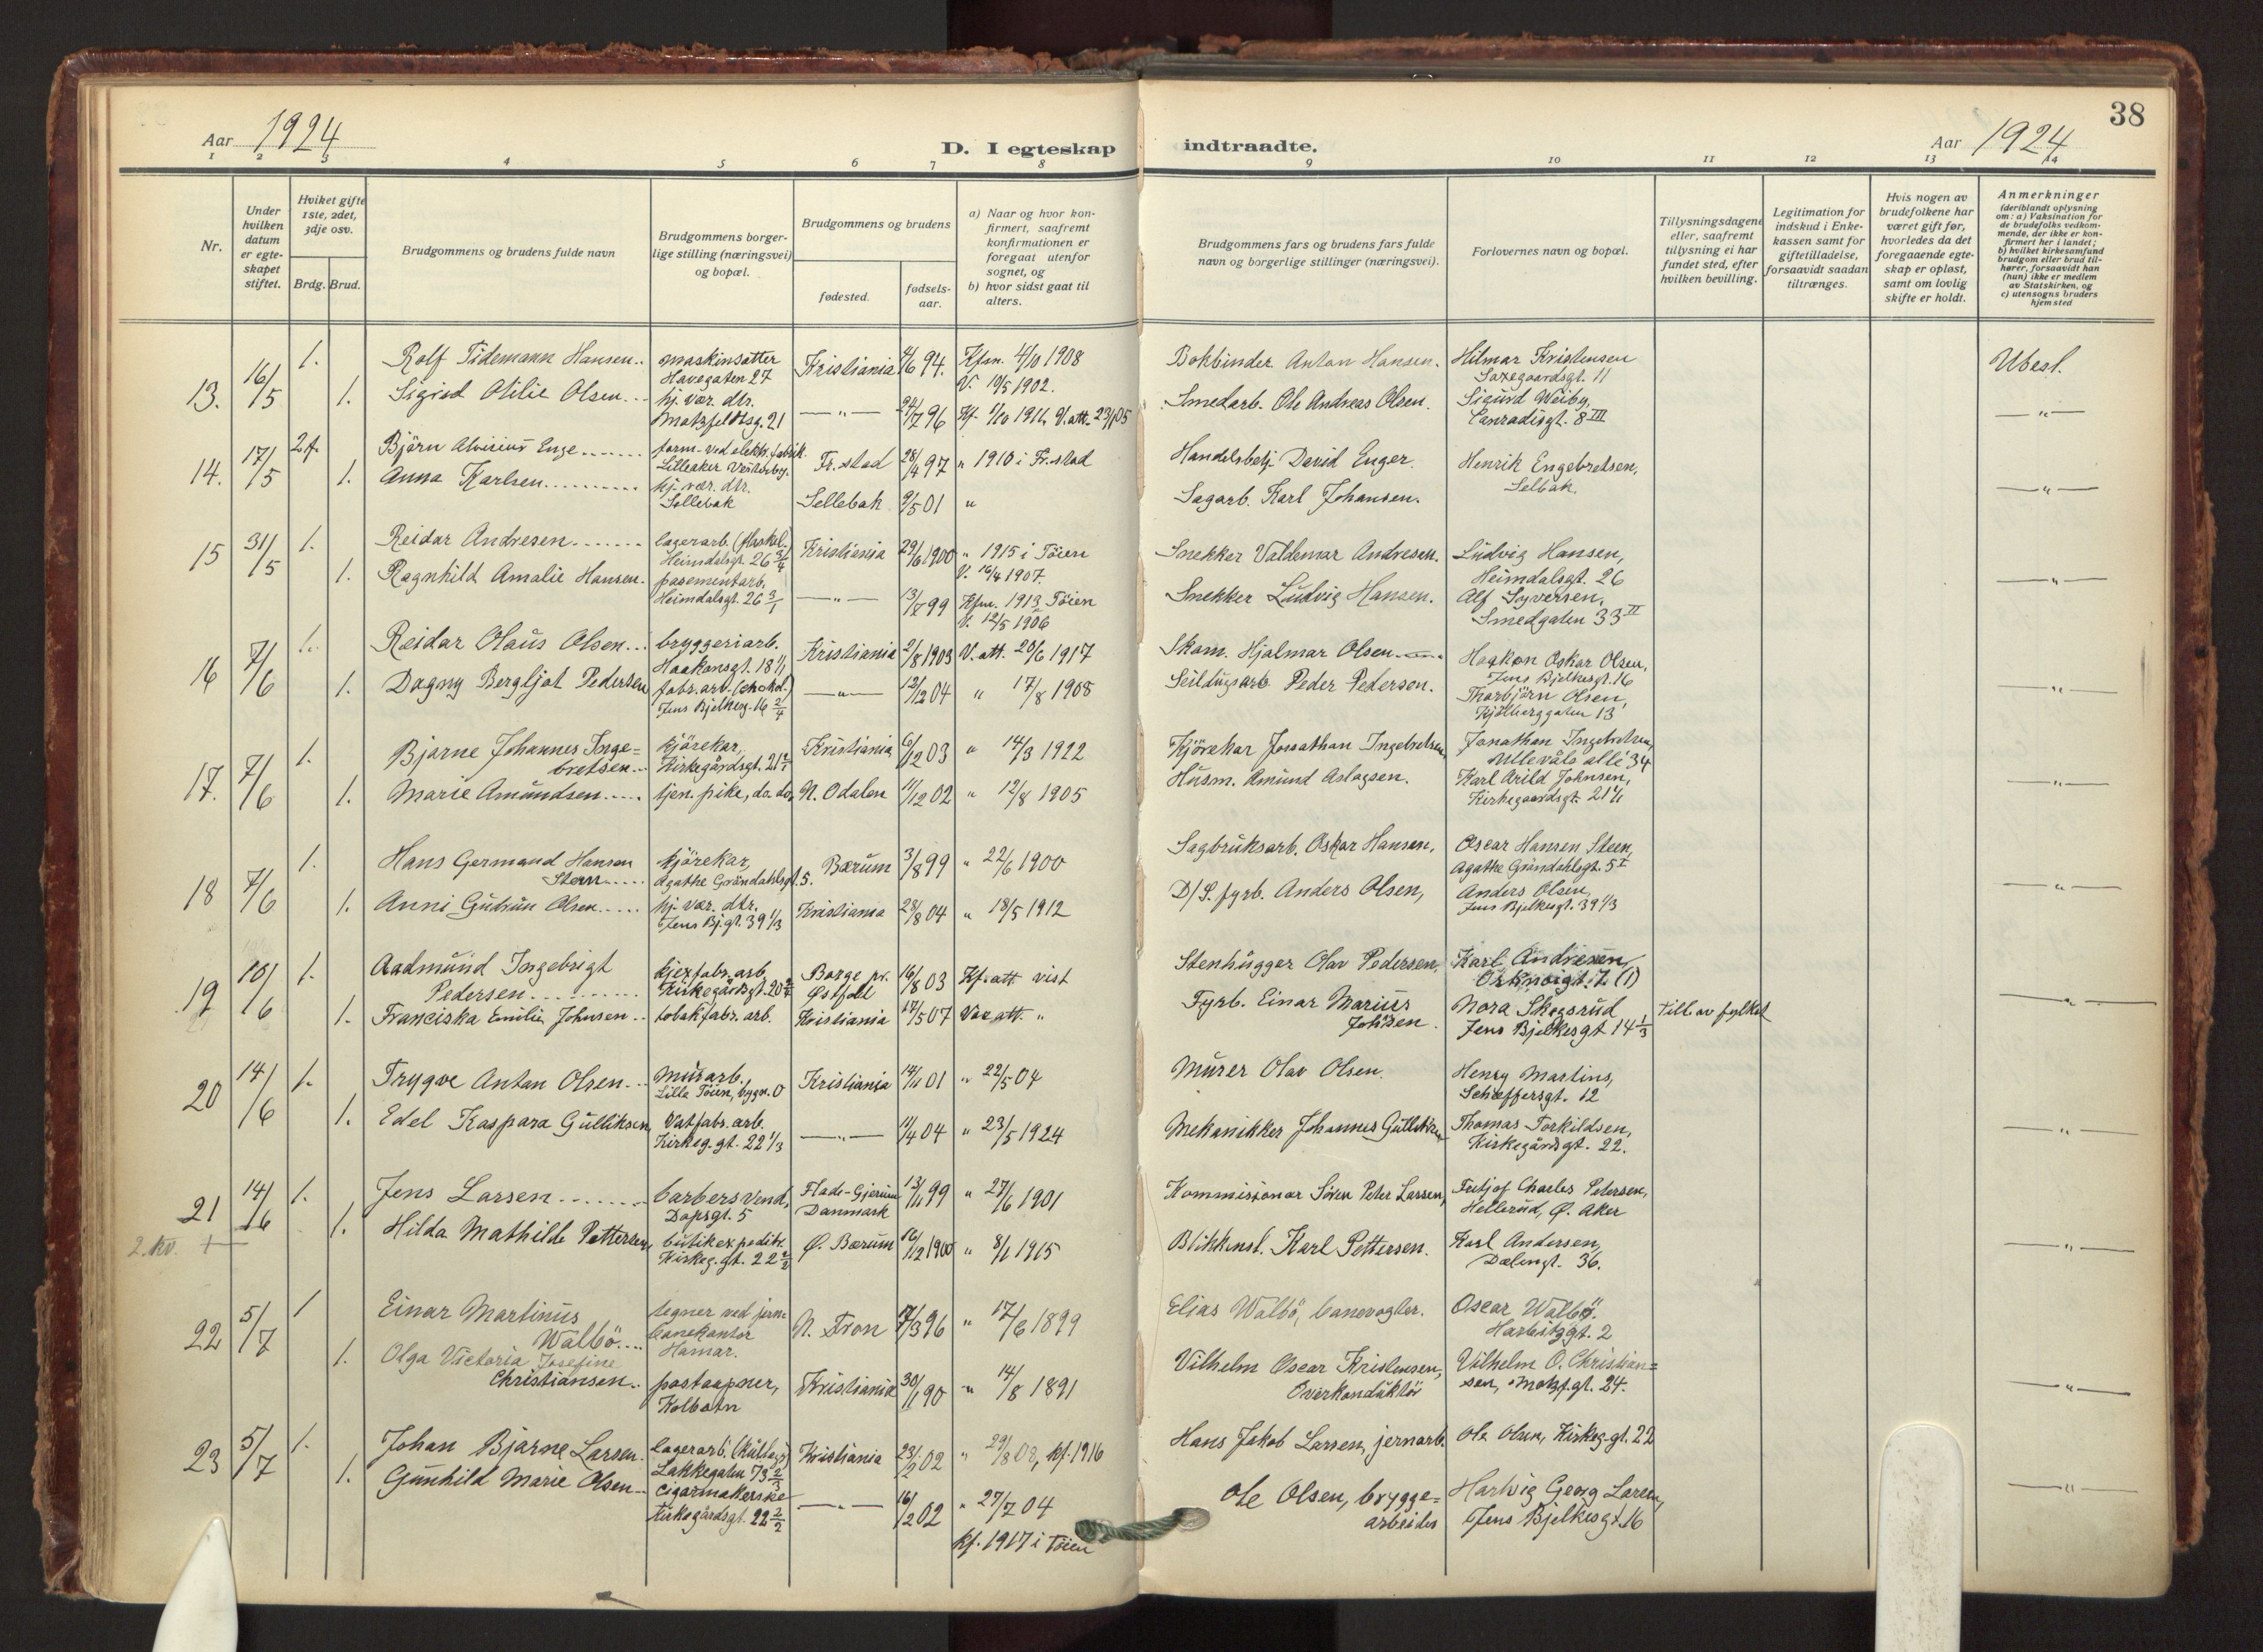 38
Aar 1924
D. I egteskap indtraadte.
Aar 1924
1 2 3 4 5 6 7 8 9 10 11 12 13 14
Nr.
Under hvilken datum er egteskapet stiftet.
Hviket gifte 1ste, 2det, 3dje osv.
Brdg. Brud.
Brudgommens og brudens fulde navn
Brudgommens borgerlige stilling (næringsvei) og bopæl.
Brudgommens og brudens
fødested.
fødselsaar.
a) Naar og hvor konfirmert, saafremt konfirmationen er foregaat utenfor sognet, og
b) hvor sidst gaat til alters.
Brudgommens fars og brudens fars fulde navn og borgerlige stillinger (næringsvei).
Forlovernes navn og bopæl.
Tillysningsdagene eller, saafremt tillysning ei har fundet sted, efter hvilken bevilling.
Legitimation for indskud i Enkekassen samt for giftetilladelse, forsaavidt saadan tiltrænges.
Hvis nogen av brudefolkene har været gift før, hvorledes da det foregaaende egteskap er opløst, samt om lovlig skifte er holdt.
Anmerkninger
(deriblandt oplysning om: a) Vaksination for de brudefolks vedkommende, der ikke er konfirmert her i landet; b) hvilket kirkesamfund brudgom eller brud tilhører, forsaavidt han (hun) ikke er medlem av Statskirken, og c) utensogns bruders hjemsted
13. 16/5 1. Rolf Tidemann Hansen.. maskinsætter Havegaten 27 Kristiania 94. Kfm. 4/10 1908 V. 10/5 1902. Bokbinder Anton Hansen. Hilmar Kristensen Saxegaardsgt. 11 Ubesl.
1. Sigrid Otilie Olsen... hj. vær. dtr. Motzfeldtsg. 21 — " — 24/7 96 Kf. 1/10 1911. V. att. Smedarb. Ole Andreas Olsen. Sigurd Weiby, Conradisgt. 8 III — " —
14. 17/5 2. Bjørn Enge....... form. ved elektr. fabrik Lilleaker Fr.stad 28/4 97 " 1910 i Fr.stad Handelsbetj. David Enger. Henrik Engebretsen, Selbak.
1. Anna Karlsen.......... hj. vær. dtr. Sellebak Sellebak 9/5 01 " Sagarb. Karl Johansen. — " —
15 31/5 1. Reidar Andresen....... lagerarb. Heimdalsgt. 26 3/4 Kristiania 29/6 1900 " 1915 i Töien V. 16/4 1907. Snekker Valdemar Andresen. Ludvig Hansen, Heimdalsgt. 26
1. Ragnhild Amalie Hansen. pasementarb. Heimdalsgt. 26 3/1 — " — 13/7 99 Kfm. 1913 Töien V. 12/5 1906 Snekker Ludvig Hansen. Alf Syversen, Smedgaten 33 II — " —
16 7/6 1. Reidar Olaus Olsen... bryggeriarb. Haakonsgt. 18 Kristiania 2/8 1903 V. att. 20/6 1917 Skom. Hjalmar Olsen. Haakon Oskar Olsen, Jens Bjelkesgt. 16
1. Dagny Bergljot Pedersen fabr. arb. (chokol.) Jens Bjelkesg. 16 2/4 — " — 12/12 04 " 17/8 1908 Seildugsarb. Peder Pedersen. Thorbjørn Olsen, Kjølberggaten 13 — " —
17. 7/6 1. Bjarne Johannes Ingebretsen... kjörekar, Kirkegårdsgt. 21 Kristiania 6/12 03 " 14/3 1922 Kjörekar Jonathan Ingebretsen Jonathan Ingebretsen, Ullevåls allé 34
1. Marie Amundsen..... tjen. pike, do. do. N. Odalen 11/12 02 " 12/8 1905 Husm. Amund Aslagsen. Karl Arild Johnsen, Kirkegaardsgt. 21 — " —
18 7/6 1. Hans Germand Hansen Steen..... kjörekar, Agathe Gröndahlsgt. 5. Bærum 3/8 99 " 22/6 1900 Sagbruksarb. Oskar Hansen, Oscar Hansen Steen, Agathe Gröndahlsgt. 5 I
1. Anni Gudrun Olsen..... hj. vær. dtr. Jens Bj.gt. 39 1/3 Kristiania 28/8 04 " 18/5 1912 D/S. fyrb. Anders Olsen, Anders Olsen, Jens Bjelkesgt. 39 1/3 — " —
19 10/6 1. Aadmund Ingebrigt Pedersen.......... kjexfabr. arb. Kirkegårdsgt. 20 Borge pr. Østfold 16/8 03 Kf. att vist Stenhugger Olav Pedersen, Karl Andresen,
1. Franciska Emilie Johnsen.. tobakfabr. arb. Kristiania 17/5 07 Vax att. " Fyrb. Einar Marius Johnsen. Nora Skogsrud Jens Bjelkesgt 14 1/3 Till. av fylket — " —
20 14/6 1. Trygve Anton Olsen... Murarb. Lille Töien, bygn. O Kristiania 14/11 01 " 22/5 04 Murer Olav Olsen. Henry Martins, Schæffersgt. 12
1. Edel Kaspara Gulliksen, Vatfabr. arb. Kirkeg. gt. 22 1/3 — " — 11/4 04 " 23/5 1924 Mekanikker Johannes Gulliksen Thomas Torkildsen, Kirkegårdsgt. 22. — " —
21 14/6 1. Jens Larsen....... barbersvend, Dopsgt. 5 Flade-Gjerum Danmark 13/11 99 " 27/6 1901 Kommissionær Sören Peter Larsen, Fritjof Charles Petersen, Hellerud, Ø. Aker
2. kv. + 1. Hilda Mathilde Pettersen, butikexpeditr. Kirkeg. gt. 22 2/2 Ø. Bærum 16/12 1900 " 8/6 1915 Blikkensl. Karl Pettersen. Karl Andersen, Dælengt. 36. — " —
22 5/7 1 Einar Martinus Wålbö.... tegner ved jernbanekontor Hamar. N. Fron 7/3 96 " 17/6 1899 Elias Wålbö, banevogter. Oscar Wålbö. Harbitzgt. 2
1. Olga Victoria Josefine Christiansen.. postaapner, Kolbotn Kristiania 30/1 90 " 14/8 1891 Vilhelm Oscar Kristensen, Overkonduktör Vilhelm O. Christiansen, Motzf.gt. 24. — " —
23 5/7 1. Johan Bjarne Larsen. lagerarb. Lakkegaten 73 2/3 Kristiania 23/2 02 " 29/8 03, kf. 1916 Hans Jakob Larsen, jernarb. Ole Olsen, Kirkeg. gt. 22
1. Gunhild Marie Olsen.. cigarmakerske Kirkegårdsgt. 22 2/2 — " — 16/2 02 " 27/7 04 kf. 1917 i Töien Ole Olsen, bryggearbeider Hartvig Georg Larsen, Jens Bjelkesgt. 16 — " —